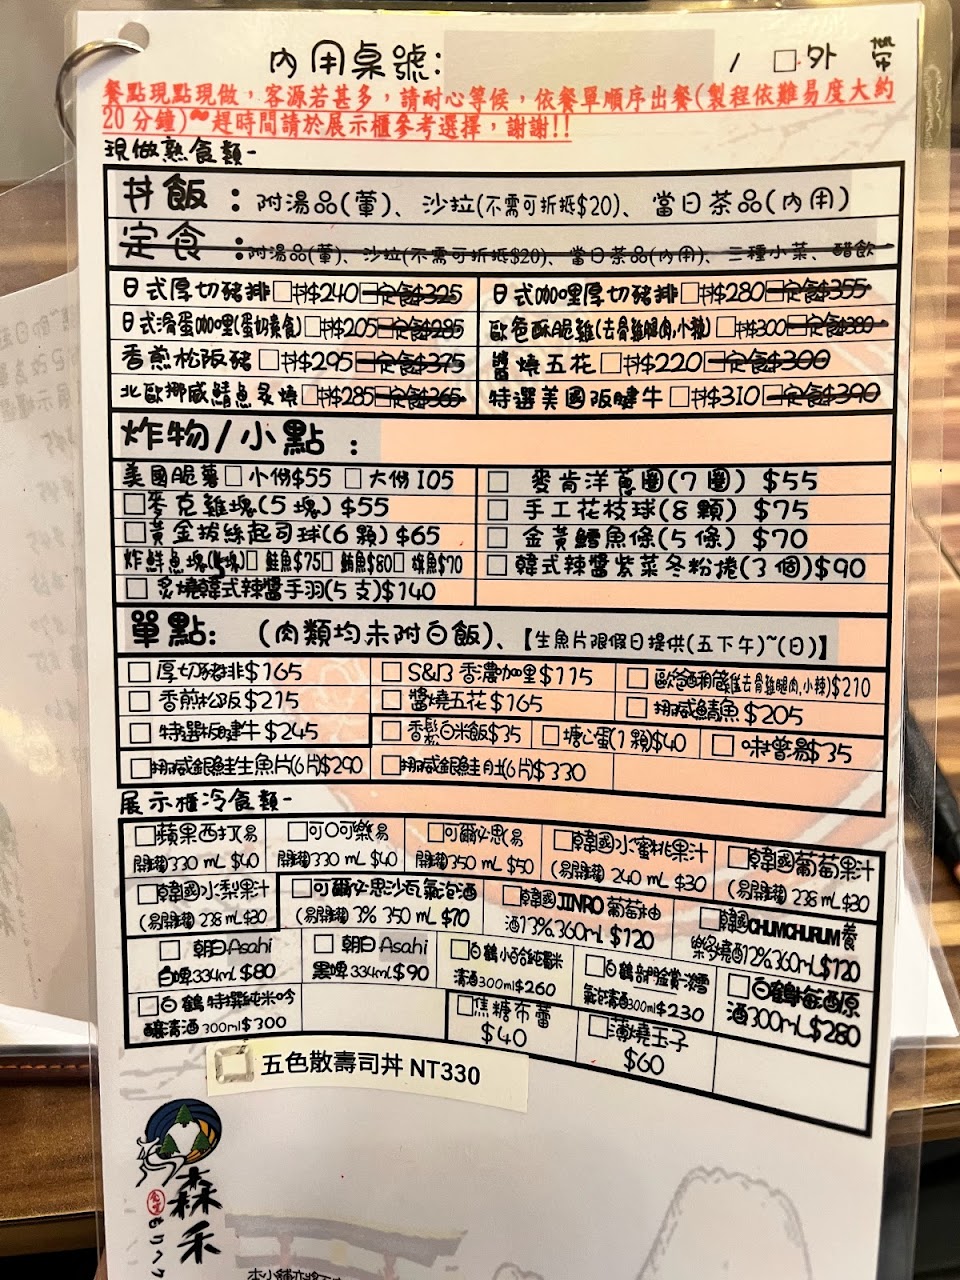 內用桌號: / □外帶
餐點現點現做，客源若甚多，請耐心等候，依餐單順序出餐(製程依難易度大約
20分鐘)~趕時間請於展示櫃參考選擇，謝謝!!
現做熟食類-
丼飯：附湯品(葷)、沙拉(不需可折抵$20)、當日茶品(內用)
定食：附湯品(葷)、沙拉(不需可折抵$20)、當日茶品(內用)、三種小菜、醋飲
日式厚切豬排□丼$240□定食$325 日式咖哩厚切豬排□丼$280□定食$355
日式滑蛋咖哩(蛋奶素食)□丼$205□定食$285 歐爸酥脆雞(去骨雞腿肉,小辣)□丼$300□定食$380
香煎松阪豬□丼$295□定食$375 醬燒五花□丼$220□定食$300
北歐挪威鯖魚炙燒□丼$285□定食$365 特選美國板腱牛□丼$310□定食$390
炸物/小點：
美國脆薯□小份$55 □大份105 □麥肯洋蔥圈(7圈) $55
□麥克雞塊(5塊) $55 □手工花枝球(8顆) $75
□黃金拔絲起司球(6顆) $65 □金黃鱈魚條(5條) $70
炸鮮魚塊 □鮭魚$75□鯛魚$80□旗魚$70 □韓式辣醬紫菜冬粉捲(3個)$90
□炙燒韓式辣醬手羽(5支)$140
單點: (肉類均未附白飯)、【生魚片限假日提供(五下午)~(日)】
□厚切豬排$165 □S&B香濃加里$115 □歐爸酥脆雞(去骨雞腿肉,小辣)$210
□香煎松阪$215 □醬燒五花$165 □挪威鯖魚$205
□特選板腱牛$245 □香鬆白米飯$35 □溏心蛋(1顆)$40 □味噌湯$35
□挪威銀鮭生魚片(6片)$290 □挪威銀鮭肚(6片)$330
展示櫃冷食類-
□蘋果西打易 □可口可樂易 □可爾必思(易 □韓國水蜜桃果汁 □韓國葡萄果汁
開罐330 mL $40 開罐330 mL $40 開罐350 mL $50 (易開罐) 240 mL $30 (易開罐) 238 mL $30
□韓國水梨果汁 □可爾必思沙瓦氣泡酒 □韓國JINRO葡萄柚 □韓國CHUMCHURUM養
(易開罐) 238 mL $30 (易開罐) 3% 350 mL $70 酒13%.360mL $120 樂多燒酒12%360mL$120
□朝日Asahi □朝日Asahi □白鶴小百合純米 □白鶴 □白鶴梅酒原
白啤334mL $80 黑啤334mL $90 清酒300ml $260 氣泡清酒300ml $230 酒300mL $280
□白鶴 特撰純米吟 □焦糖布蕾 □薄燒玉子
釀清酒 300ml $300 $40 $60
五色散壽司丼 NT330
森禾
もりへり